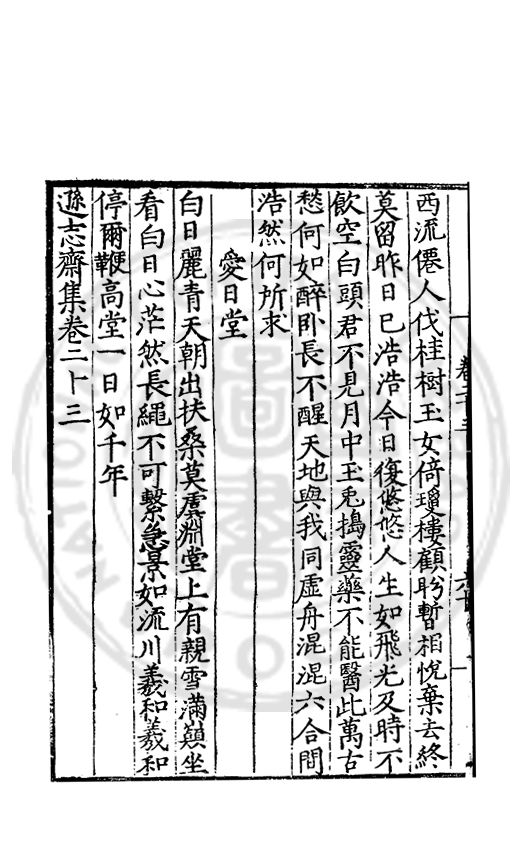 西流僊人伐桂樹玉女倚瓊樓顧盼暫相悅棄去終
莫留昨日已浩浩今日復悠悠人生如飛光及時不
飲空白頭君不見月中玉兎搗靈藥不能醫此萬古
愁何如醉卧長不醒天地與我同虛舟混混六合間
浩然何所求
愛日堂
白日麗青天朝出扶桑莫虞淵堂上有親雪滿巔坐
看白日心茫然長繩不可繫急景如流川羲和羲和
停爾鞭高堂一日如千年
遜志齋集卷二十三